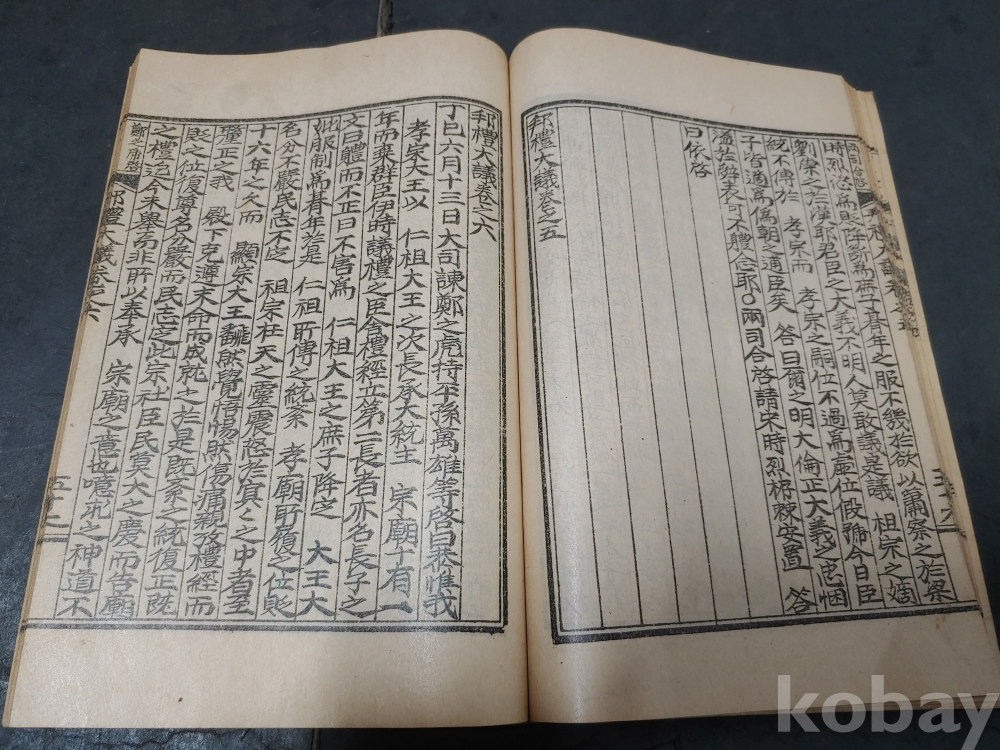 時烈忿爲貶降孝廟爲庶子朞年之服不幾於欲以蕭察之於梁
劉崇之於漢耶君臣之大義不明人莫敢議是議 祖宗之嫡
統不傳於 孝宗而 孝宗之嗣位不過爲虛位假號今日臣
子皆適爲僞朝之適臣矣 答曰爾之明大倫正大義之忠悃
溢於辭表可不體念耶○兩司合啓請宋時烈栫棘安置 答
曰依啓
邦禮大議卷之五
邦禮大議卷之六
丁巳六月十三日大司諫鄭之虎持平孫萬雄等啓曰恭惟我
孝宗大王以 仁祖大王之次長承大統主 宗廟十有一
年而棄群臣伊時議禮之臣舍禮經立第二長者亦名長子之
文曰體而不正曰不害爲 仁祖大王之庶子降之 大王大
妃服制爲朞年於是 仁祖所傳之統紊 孝廟所履之位貶
名分不嚴民志不定 祖宗在天之靈震怒於冥冥之中者至
十六年之久而 顯宗大王飜然覺悟惕然傷痛親攷禮經而
釐正之我 殿下克遵末命而成就之於是旣紊之統復正旣
貶之位復尊名分嚴而民志定此宗社臣民莫大之慶而告廟
之禮迄今未擧易非所以奉承 宗廟之意也噫祀之神道不
邦禮大議卷之六
五十之一
kobay